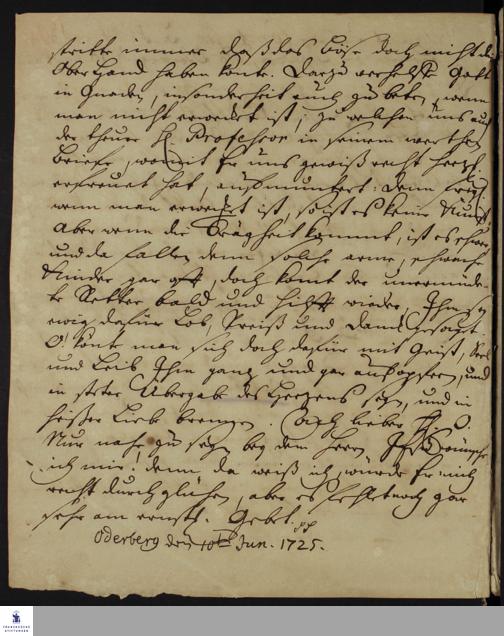 stritte immer daß das böse doch nicht die
Oberhand haben könte. Darzu verhelffe Gott
in Gnaden, insonderheit auch zu beten, wenn
man nicht erwecket ist; zu welchen uns auch
der theure H. Professor in seinem werthen
Briefe, womit Er uns gewiß recht hertzl.
erfreuet hat, aufmuntert: denn
wenn man erwecket ist, so ist es keine Kunst
Aber wenn die Trägheit kommt, ist es schwer
und da fallen denn solche arme, schwache
Kinder gar offt, doch komt der unermüde-
te Retter bald und hilfft wieder, Ihm sey
ewig dafür Lob, Preiß und Danck gesagt.
O! könt man sich doch dafür mit Geist, Seel
und Leib Ihm gantz und gar aufopfern, und
in steter Übergabe des Hertzens seyn, und in
heißer Liebe brennen. Ach lieber H. O.
Nur nahe zu seyn bey dem Herrn Jesu wünsche
ich mir! denn da weiß ich, würde Er mich
recht durchglühen, aber es fehlet noch gar
sehr am ernstl. Gebet.
Oderberg den 10ten Jun. 1725.
FRANCKESCHE
STIFTUNGEN